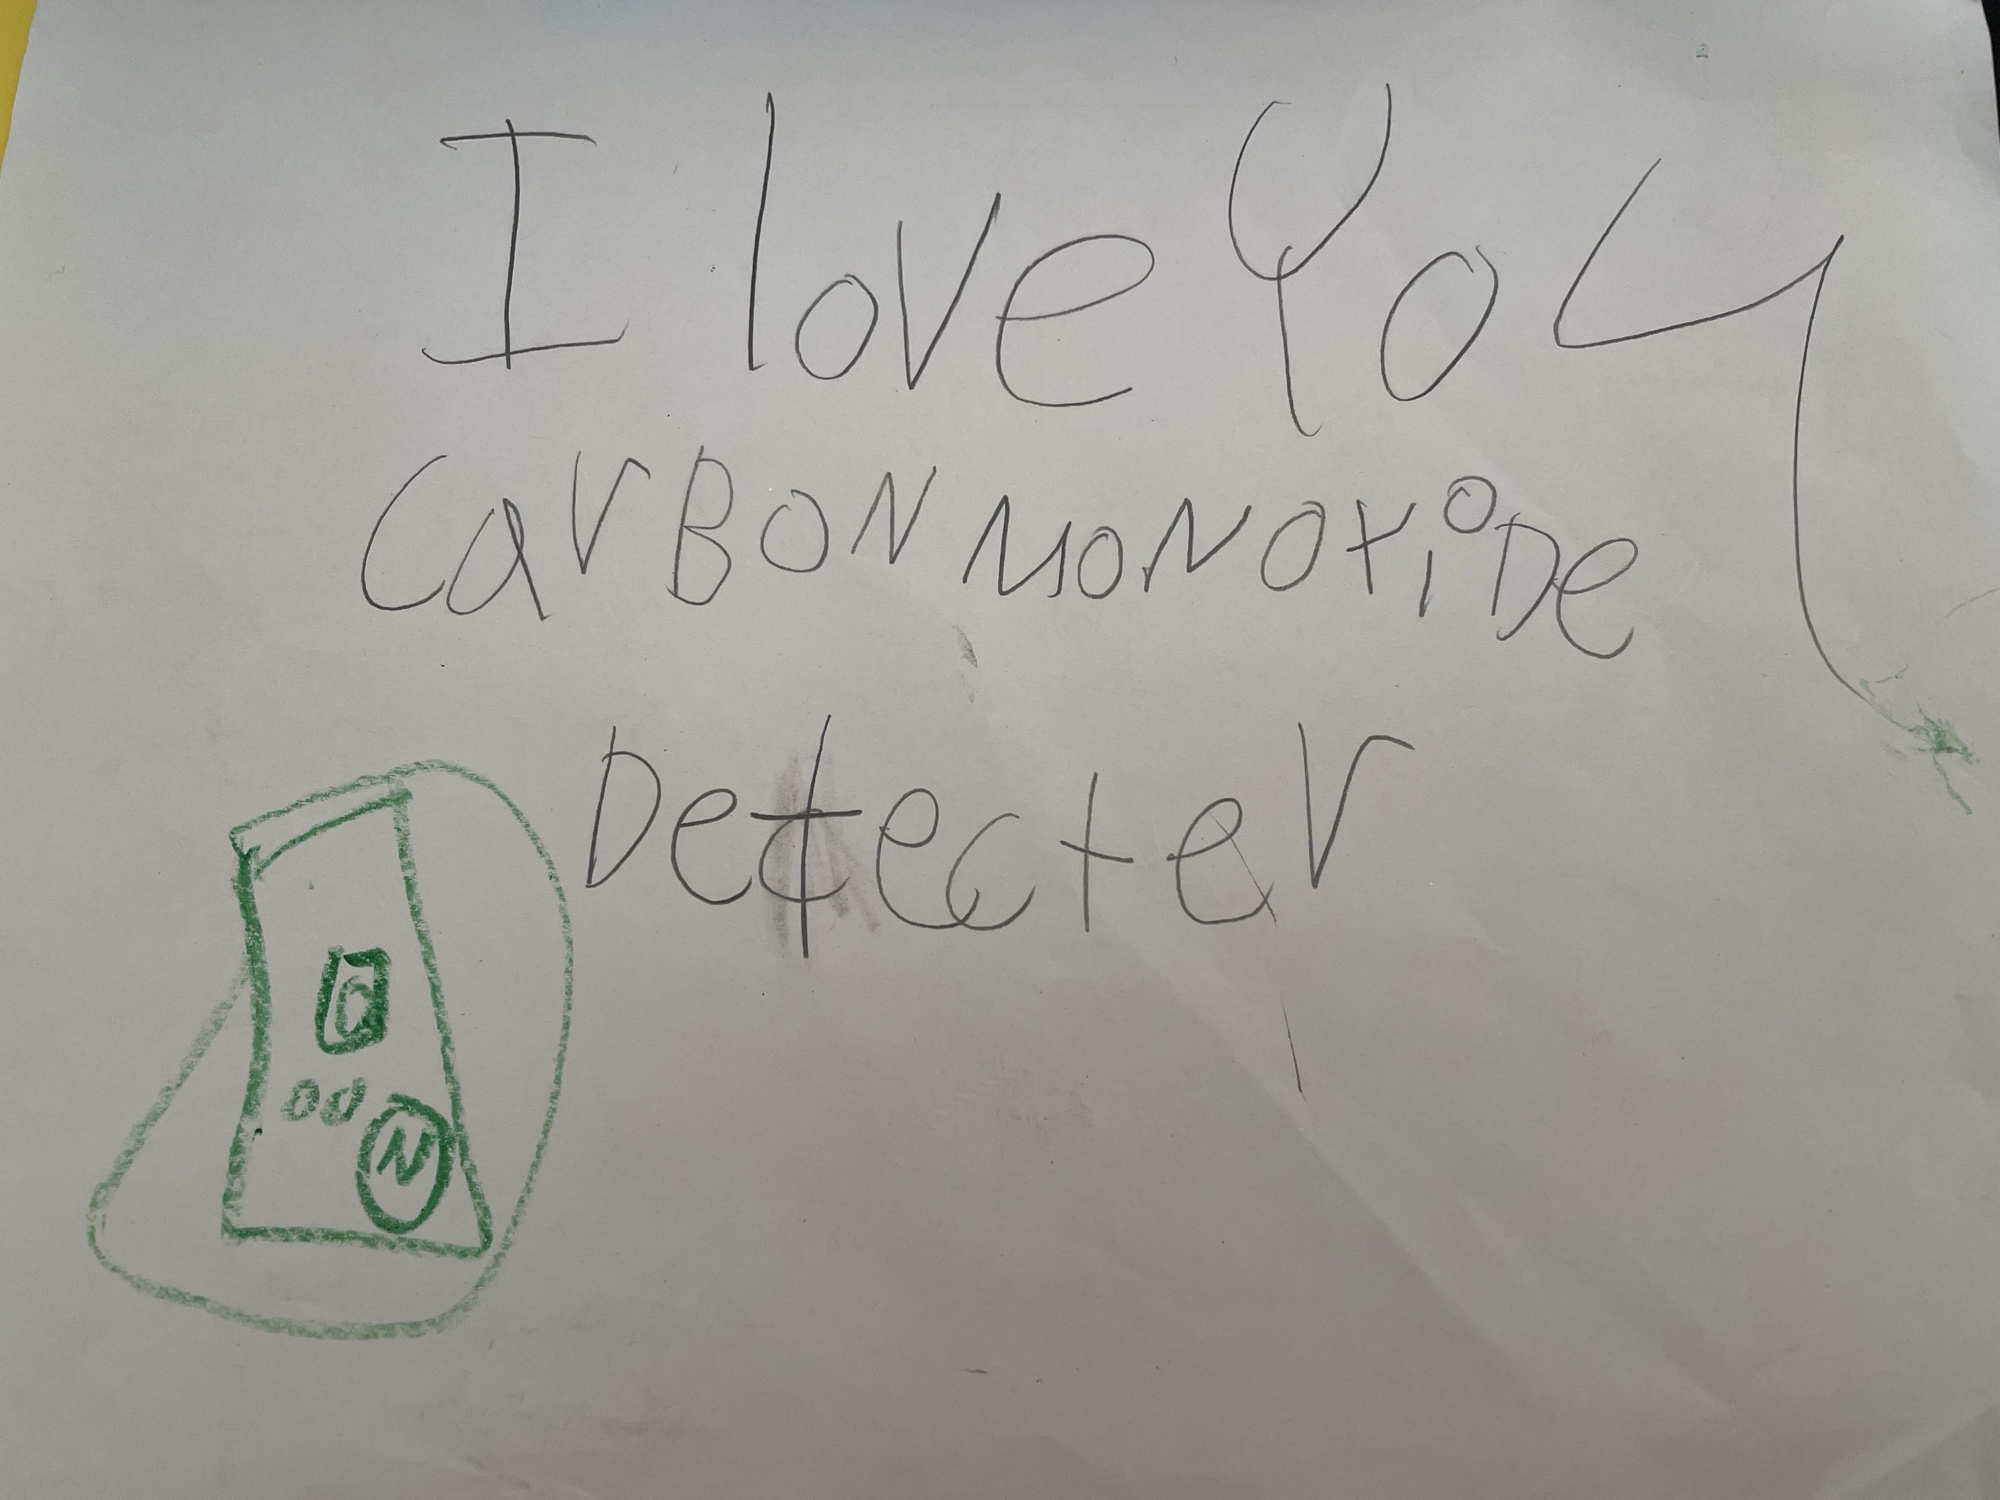 I love You
CarBoN MONOxiDe
Detecter
C
00
N